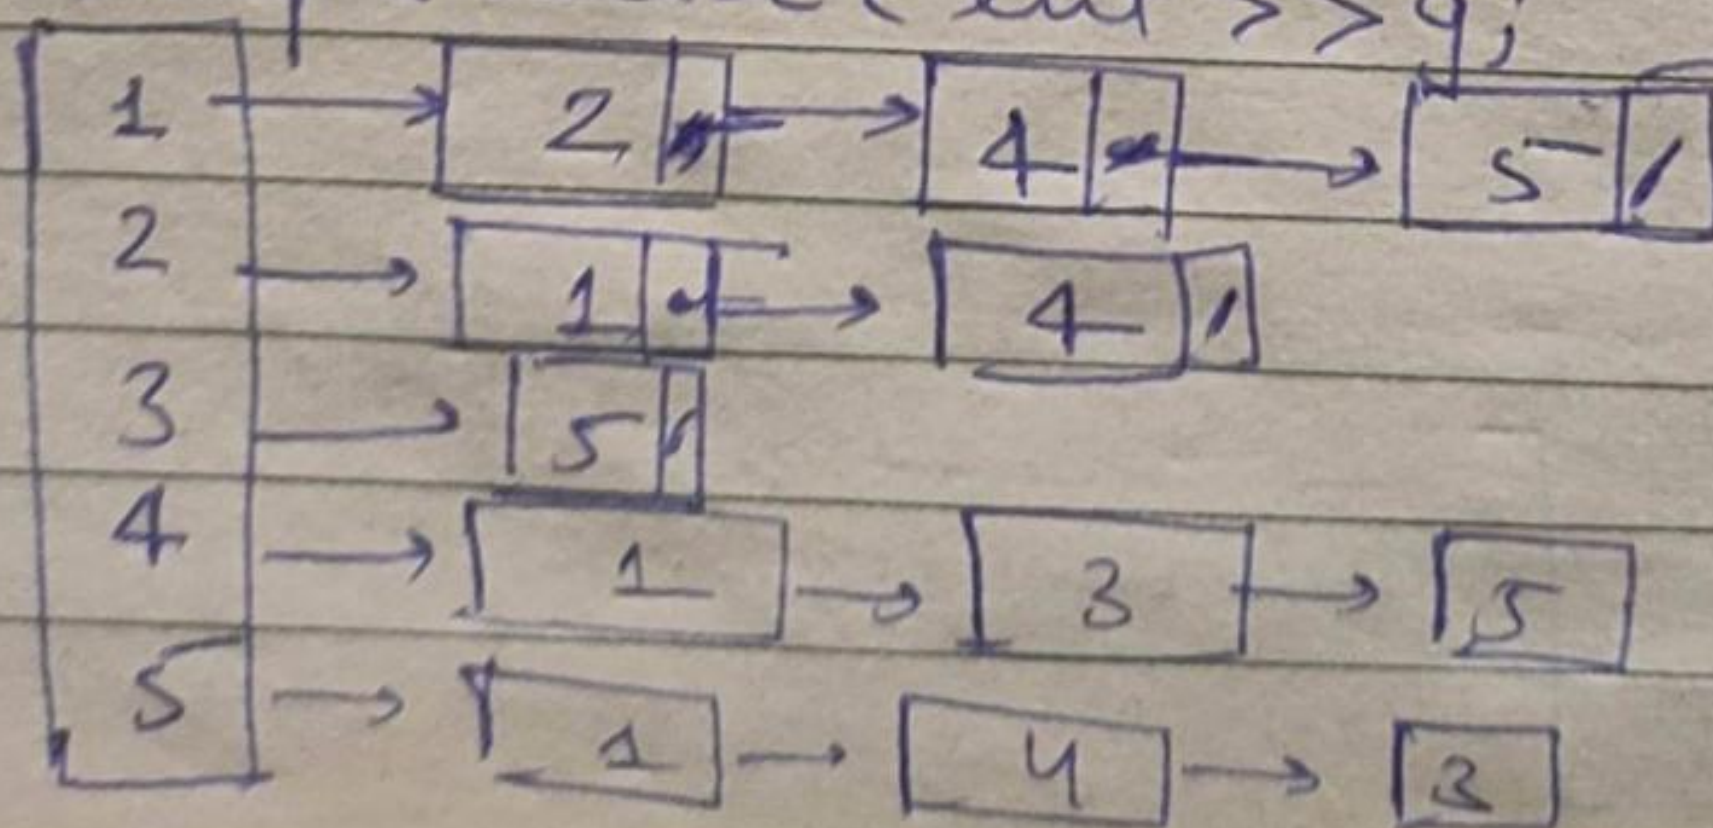 >>q;
1 → 2 → 4 → 5
2 → 1 → 4
3 → 5
4 → 1 → 3 → 5
5 → 1 → 4 → 3